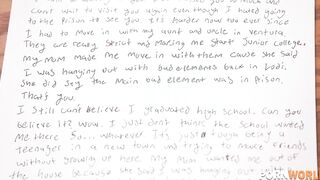 Can't wait to visit you again even though I hated going
to the Prison to see you, it's harder now too ever since
I had to move in with my aunt and uncle in Ventura.
They are really strict and making me start Junior College.
My mom made me move in with them cause she said
I was hanging out with bad elements back in Lodi.
She did say the main bad element was in Prison.
That's you.
I still can't believe I graduated high school. Can you
believe it? Wow. I just don't things the school wanted
me there so... whatever it's just tough being a
teenager in a new town and trying to make friends
without growing up here. My mom wanted me out of
the house because she said I was hanging out
PORNWORL